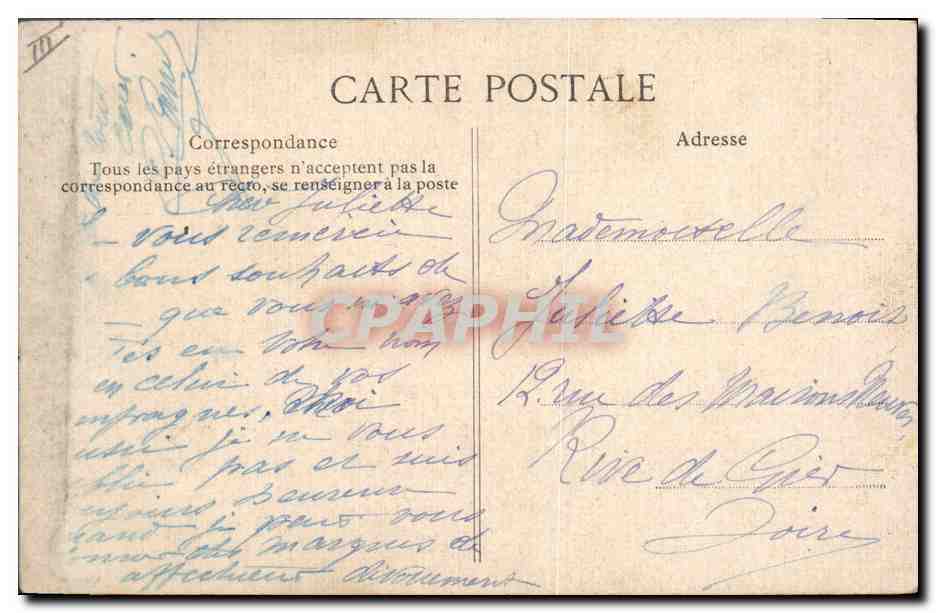 III
CARTE POSTALE
Correspondance
Tous les pays étrangers n'acceptent pas la
correspondance au recto, se renseigner à la poste
Juliette
vous remercie
bons souhaits de
que vous m'avez
tes en votre nom
en celui de vos
mpagnes, Moi
ussi je ne vous
blie pas et suis
ujours heureux
uand je peut vous
des marques de
affectueux dévouement
Adresse
Mademoiselle
Juliette Benoit
12 rue des Maisons Neuves,
Rive de Gier
Loire
CPAPHIL